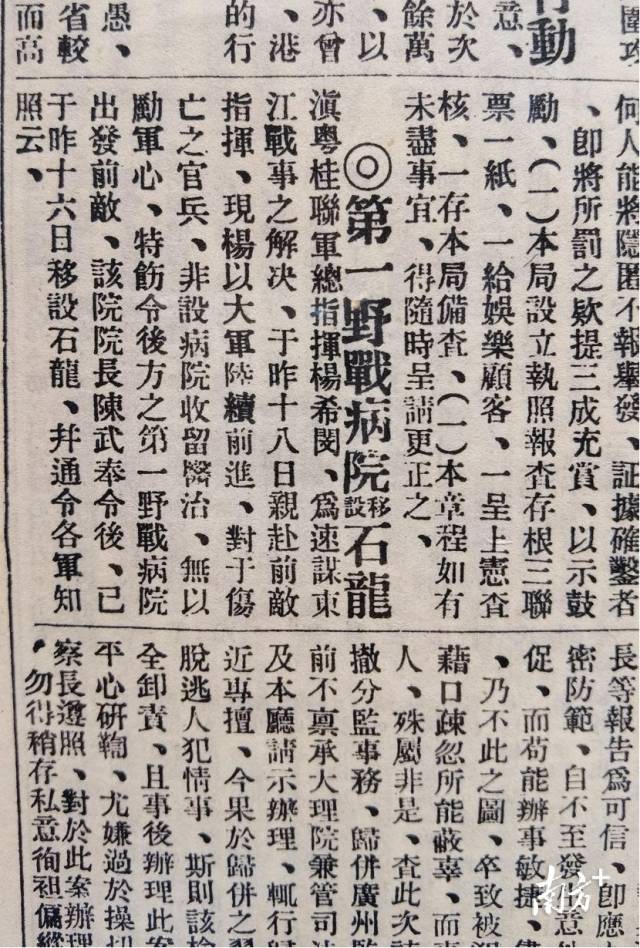 圍攻
行動
意、
於次
餘萬
、以
亦曾
、港
的行
愚、
省較
而高
何人能將隱匿不報舉發、証據確鑿者
、卽將所罰之欵提三成充賞、以示鼓
勵、(一)本局設立執照報查存根三聯
票一紙、一給娛樂顧客、一呈上憲查
核、一存本局備查、(一)本章程如有
未盡事宜、得隨時呈請更正之、
◎第一野戰病院移設石龍
滇粵桂聯軍總指揮楊希閔、爲速謀東
江戰事之解決、于昨十八日親赴前敵
指揮、現楊以大軍陸續前進、對于傷
亡之官兵、非設病院收留醫治、無以
勵軍心、特飭令後方之第一野戰病院
出發前敵、該院院長陳武奉令後、已
于昨十六日移設石龍、幷通令各軍知
照云、
長等報告爲可信、卽應
密防範、自不至發生意
促、而苟能辦事敏捷、
、乃不此之圖、卒致被
藉口疎忽所能蔽辜、而事
人、殊屬非是、查此次
撤分監事務、歸併廣州監
前不禀承大理院兼管司
及本廳請示辦理、輒行
近專擅、今果於歸併之
脫逃人犯情事、斯則該
全卸責、且事後辦理此案
平心研鞫、尤嫌過於操切
察長遵照、對於此案辦理
、勿得稍存私意徇袒偏縱
南方+